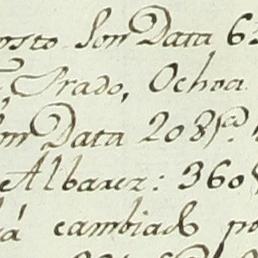 osto Son Data 63
Prado, Ochoa
on Data 208
Albarez: 360
á cambiado po